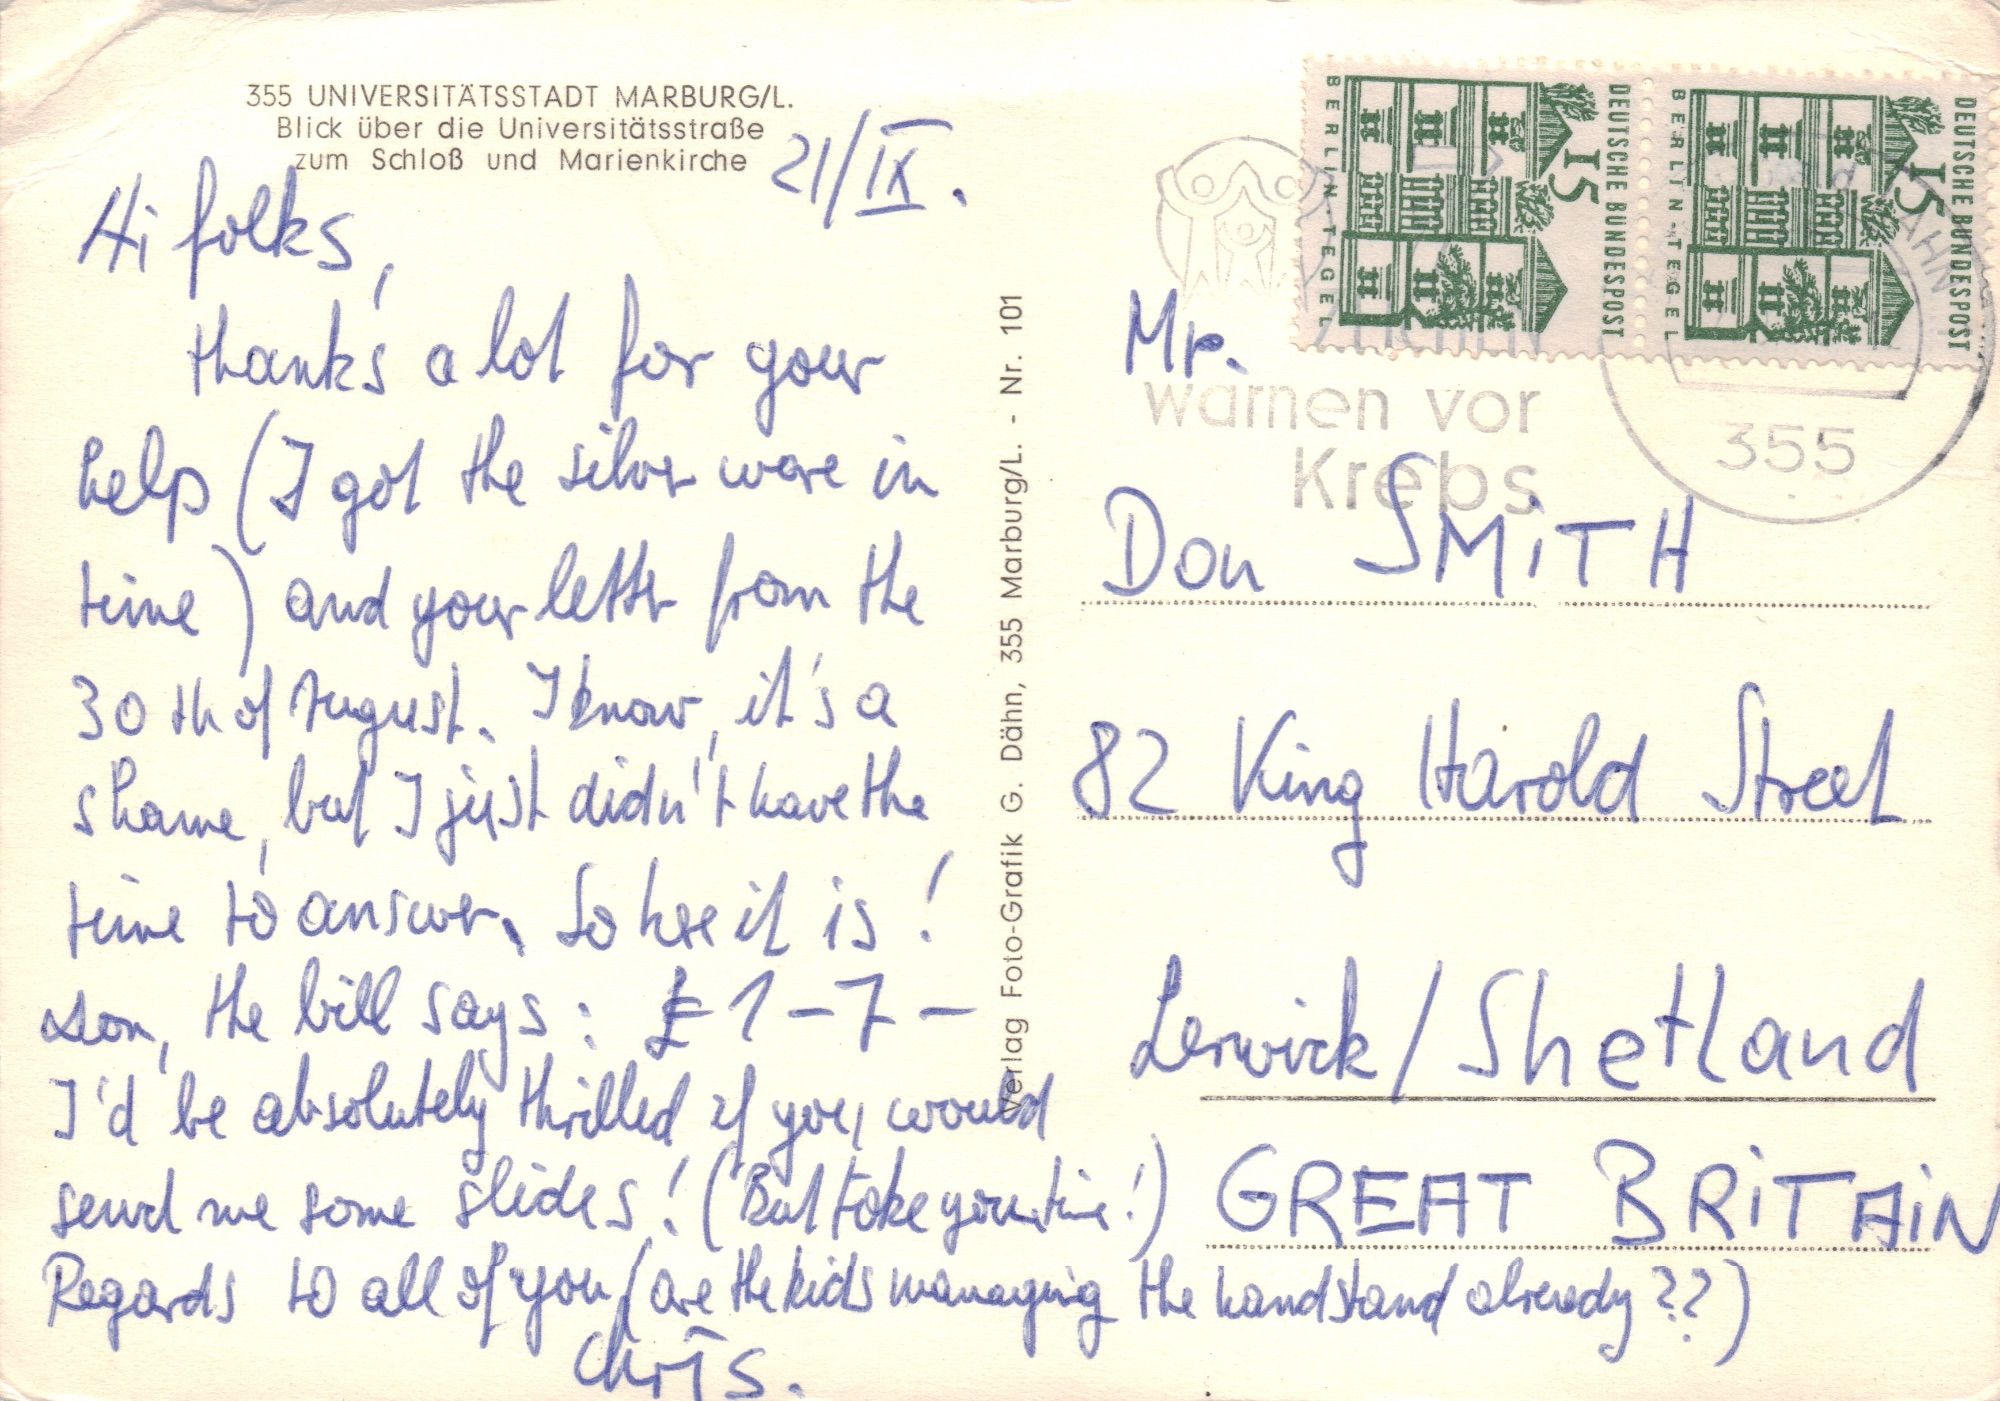 355 UNIVERSITÄTSSTADT MARBURG/L.
Blick über die Universitätsstraße
zum Schloß und Marienkirche
21/IX.
Hi folks,
thanks a lot for your
help (I got the silver ware in
time) and your letter from the
30th of August. I know, it's a
shame, but I just didn't have the
time to answer. So here it is!
Don, the bill says: £1-7-
I'd be absolutely thrilled if you would
send me some slides! (But take your time!)
Regards to all of you (are the kids managing the handstand already??)
Chris.
Verlag Foto-Grafik G. Dähn, 355 Marburg/L. - Nr. 101
DEUTSCHE BUNDESPOST
15
BERLIN-TEGEL
DEUTSCHE BUNDESPOST
15
BERLIN-TEGEL
warnen vor
Krebs
355
Mr.
Don SMiTH
82 King Harold Street
Lerwick/Shetland
GREAT BRiTAiN